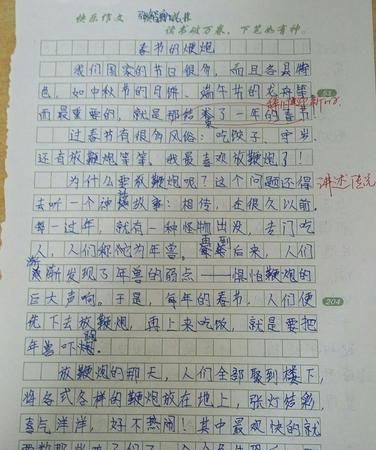 快乐作文
读书破万卷，下笔如有神。
春节的鞭炮
我们国家的节日很多，而且各具特
色，如中秋节的月饼、端午节的龙舟等
53
而最重要的，就是那结束了一年的春节
过春节有很多风俗：吃饺子、守岁、
还有放鞭炮等等，我最喜欢放鞭炮了！
为什么要放鞭炮呢？这个问题还得
讲述传说
去听一个神话故事：相传，在很久以前，
每一过年，就有一种怪物出没，去门吃
人，人们称它为年兽。再到后来，人们
渐渐发现了年兽的弱点——惧怕鞭炮的
巨大声响。于是，每年的春节，人们便
204
先下去放鞭炮，再上来吃饭，就是要把
年兽吓跑。
放鞭炮的那天，人们全部聚到楼下，
将各式各样的鞭炮放在地上，张灯结彩，
喜气洋洋，好不热闹！其中最欢快的就